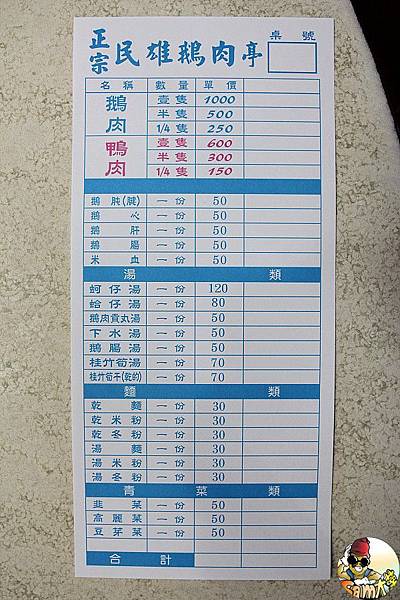 正宗民雄鵝肉亭 桌號
名稱 數量 單價
鵝肉 壹隻 1000
半隻 500
1/4隻 250
鴨肉 壹隻 600
半隻 300
1/4隻 150
鵝肫(腱) 一份 50
鵝心 一份 50
鵝肝 一份 50
鵝腸 一份 50
米血 一份 50
湯類
蚵仔湯 一份 120
蛤仔湯 一份 80
鵝肉貢丸湯 一份 50
下水湯 一份 50
鵝腸湯 一份 50
桂竹筍湯 一份 70
桂竹筍干(乾的) 一份 70
麵類
乾麵 一份 30
乾米粉 一份 30
乾冬粉 一份 30
湯麵 一份 30
湯米粉 一份 30
湯冬粉 一份 30
青菜類
韭菜 一份 50
高麗菜 一份 50
豆芽菜 一份 50
合計